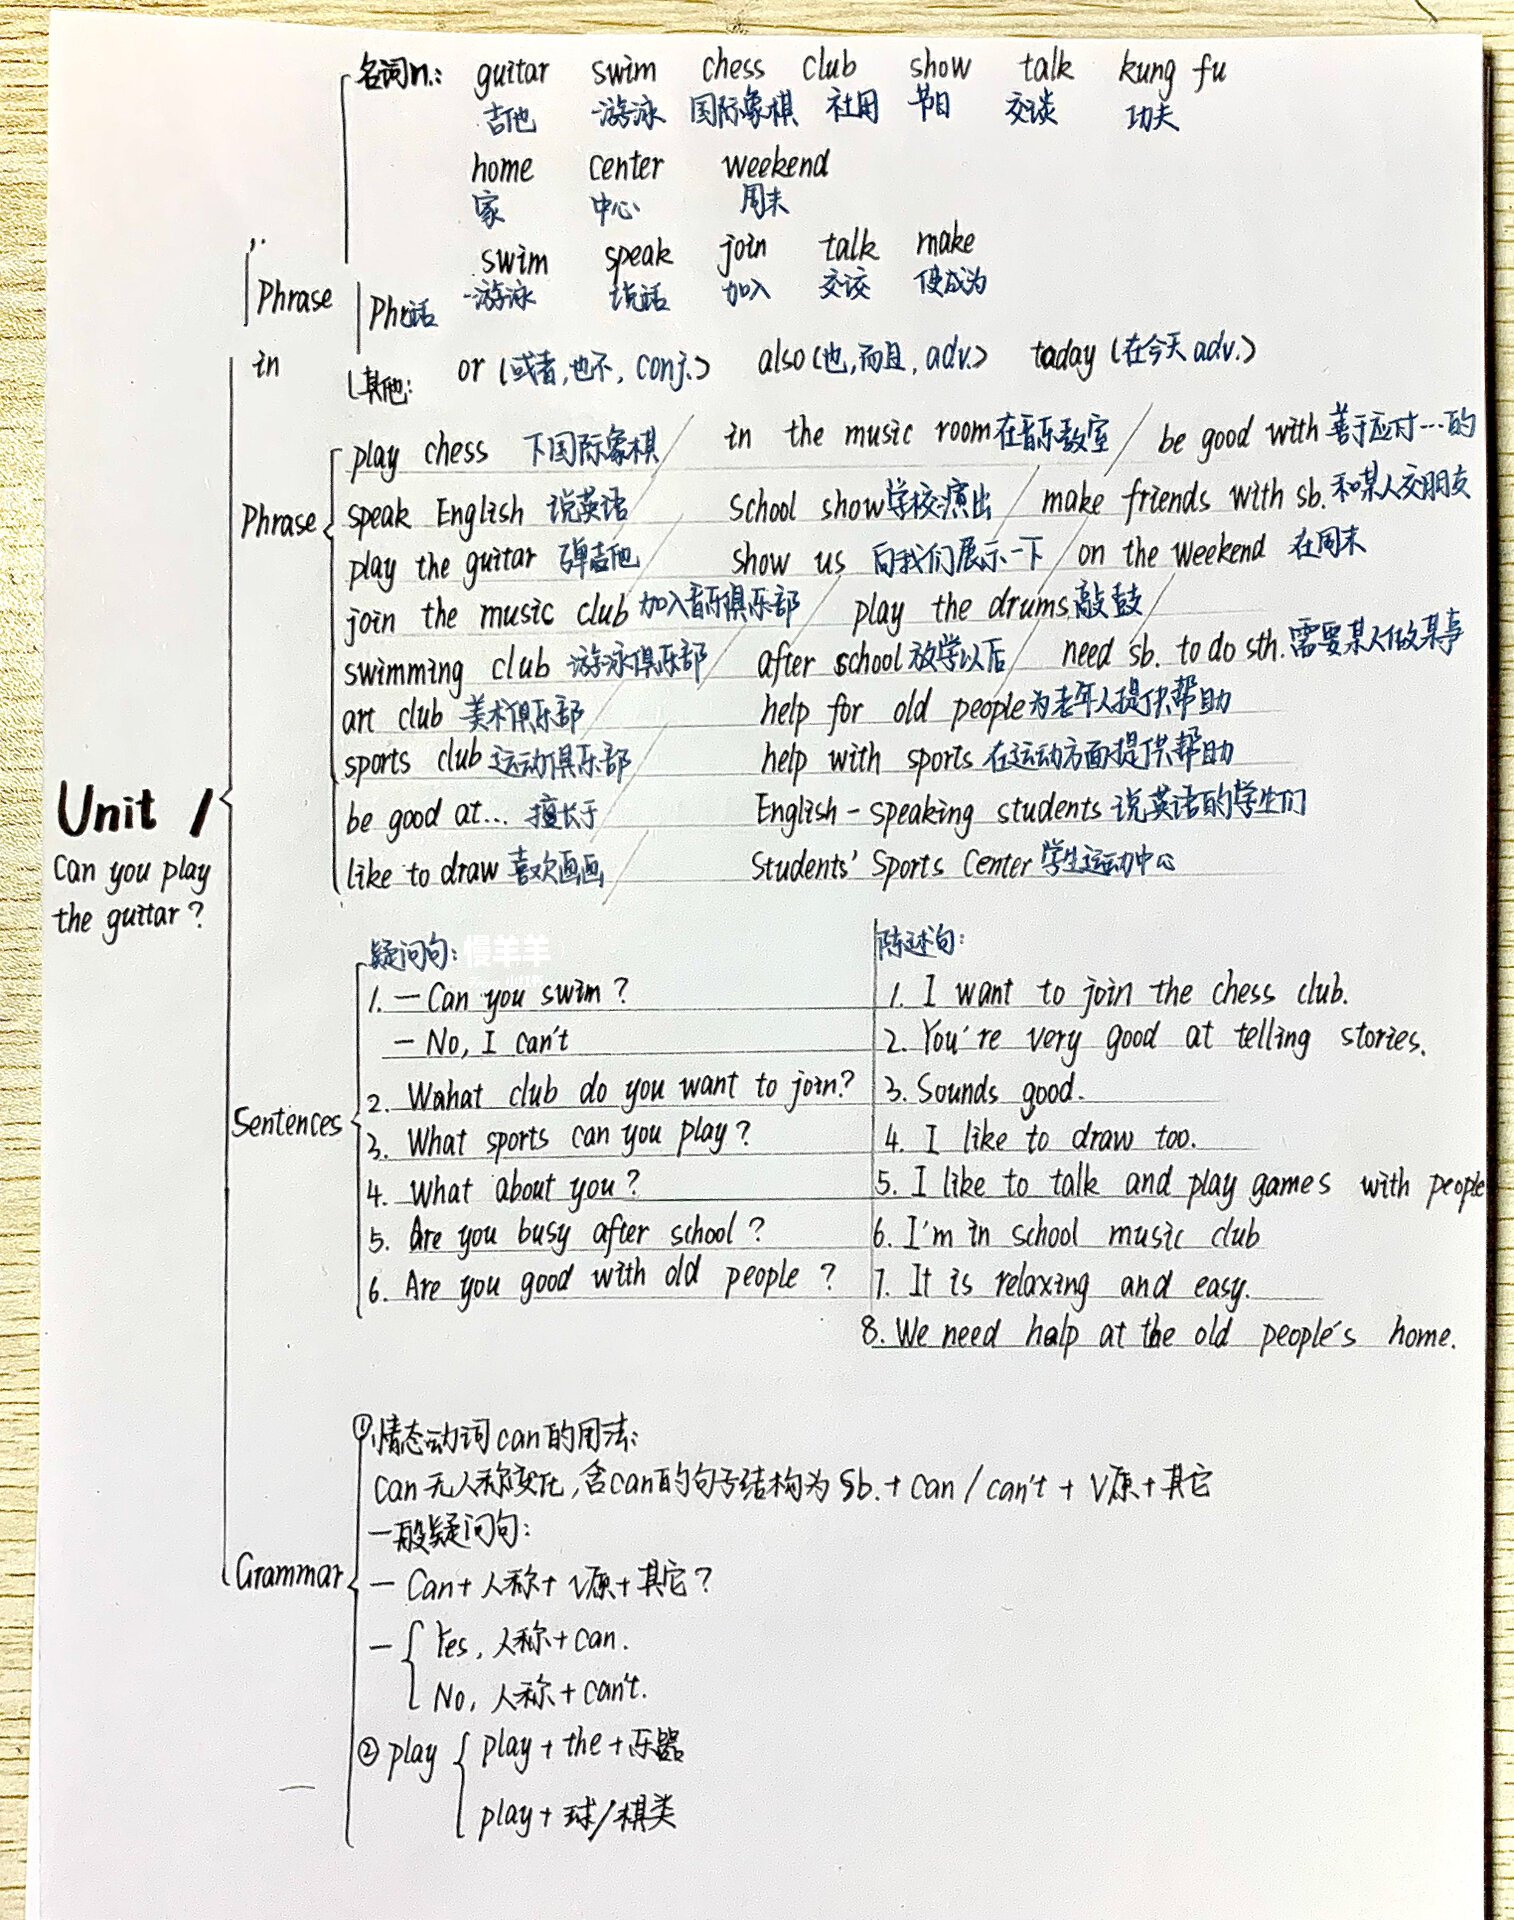 名词n.: guitar swim chess club show talk kung fu
吉他 游泳 国际象棋 社用 节日 交谈 功夫
home center weekend
家 中心 周末
swim speak join talk make
Phrase Phr话 游泳 说话 加入 交谈 使成为
in
其他: or (或者,也不, conj.) also (也,而且, adv.) taday (在今天 adv.)
play chess 下国际象棋 / in the music room 在音乐教室 / be good with 善于应对…的
Phrase speak English 说英语 school show 学校演出 / make friends with sb. 和某人交朋友
play the guitar 弹吉他 show us 向我们展示一下 / on the weekend 在周末
join the music club 加入音乐俱乐部 / play the drums 敲鼓 /
swimming club 游泳俱乐部 after school 放学以后 / need sb. to do sth. 需要某人做某事
art club 美术俱乐部 help for old people 为老年人提供帮助
sports club 运动俱乐部 help with sports 在运动方面提供帮助
Unit 1
be good at… 擅长于 English-speaking students 说英语的学生们
Can you play
the guitar?
like to draw 喜欢画画 Students' Sports Center 学生运动中心
疑问句: 慢羊羊
Sentences
1. — Can you swim?
— No, I can't
2. Wahat club do you want to join?
3. What sports can you play?
4. What about you?
5. Are you busy after school?
6. Are you good with old people?
陈述句:
1. I want to join the chess club.
2. You're very good at telling stories.
3. Sounds good.
4. I like to draw too.
5. I like to talk and play games with people
6. I'm in school music club
7. It is relaxing and easy.
8. We need help at the old people's home.
Grammar
①情态动词can的用法:
can无人称变化,含can的句子结构为 Sb. + can / can't + V原 + 其它
一般疑问句:
— Can + 人称 + V原 + 其它?
— Yes, 人称 + can.
No, 人称 + can't.
② play play + the + 乐器
play + 球/棋类